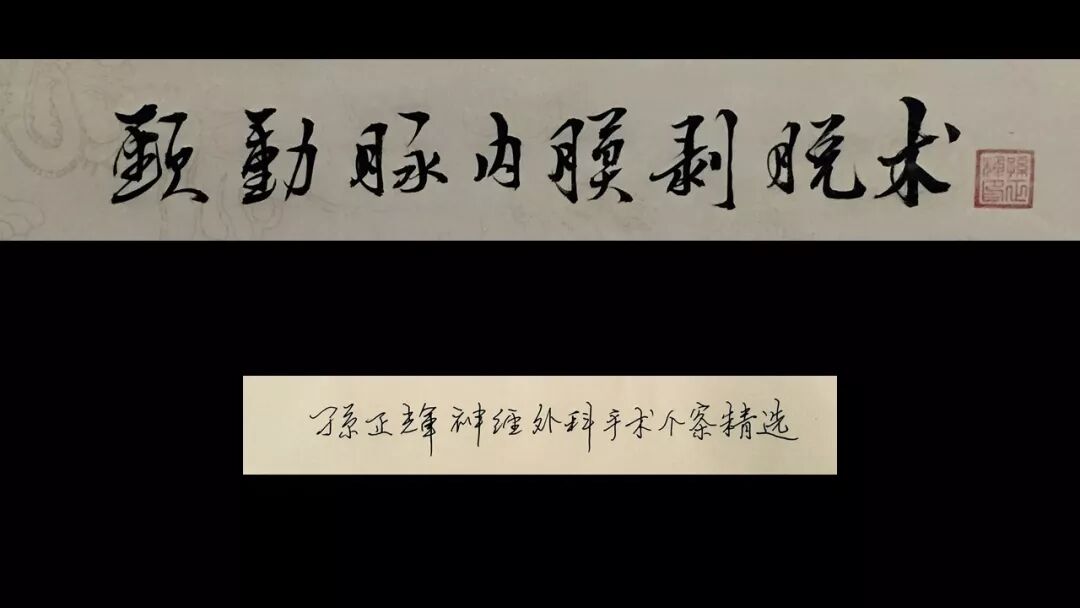 頸動脉内膜剥脱术
孫正輝神经外科手术个案精选